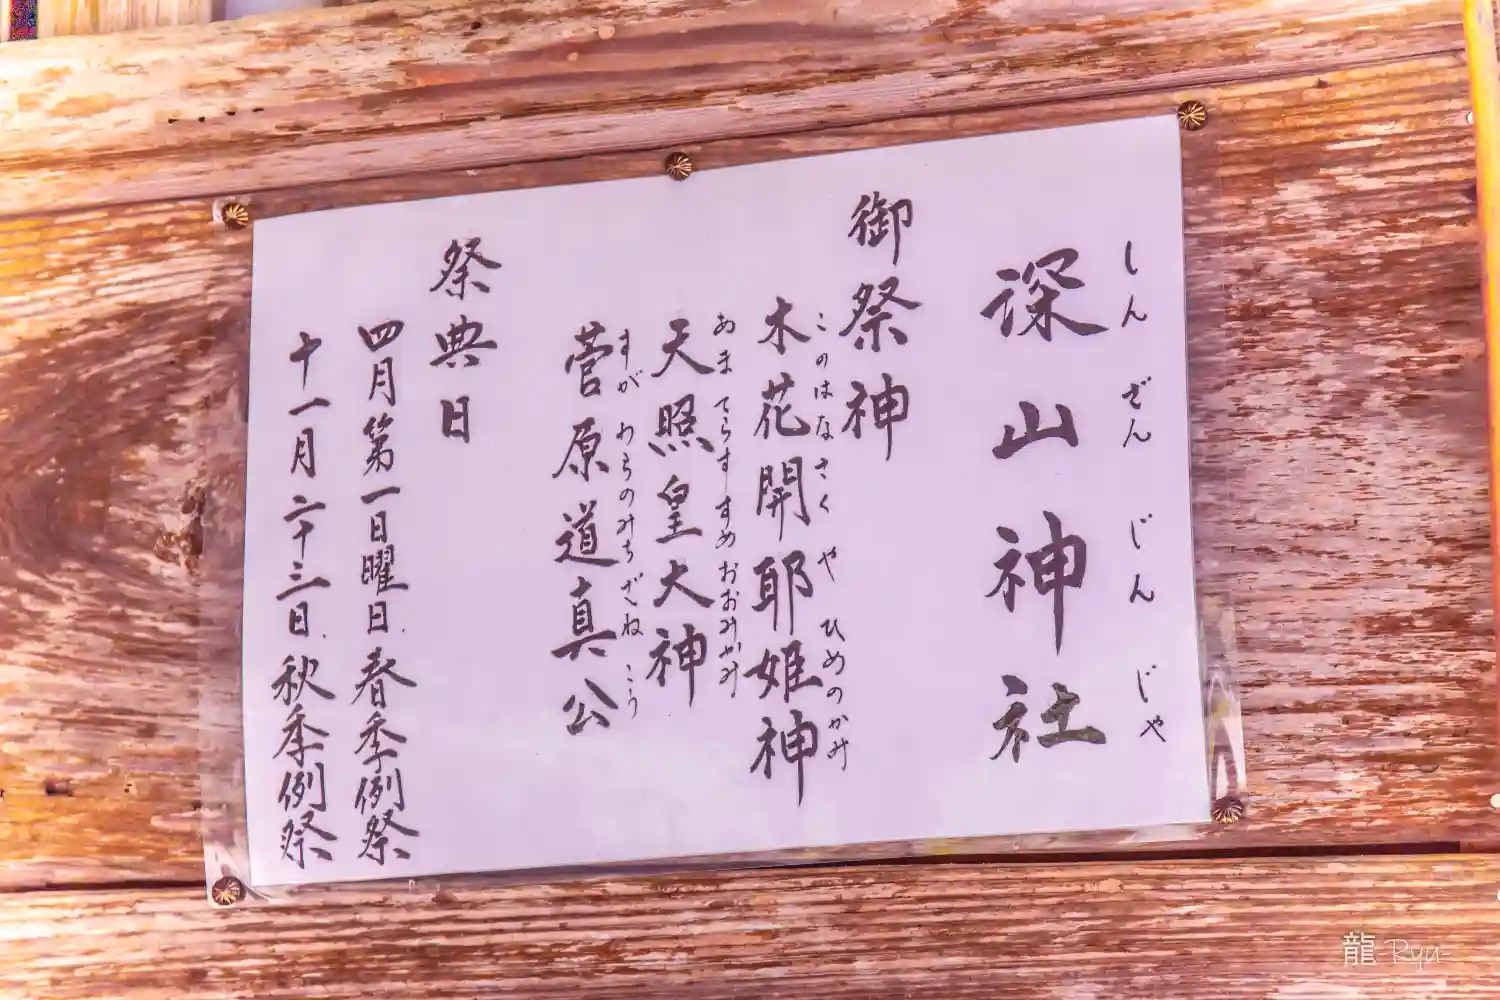 しんざんじんじゃ
深山神社
御祭神
このはなさくやひめのかみ
木花開耶姫神
あまてらすすめおおみかみ
天照皇大神
すがわらのみちざねこう
菅原道真公
祭典日
四月第一日曜日.春季例祭
十一月二十三日.秋季例祭
龍-Ryu-